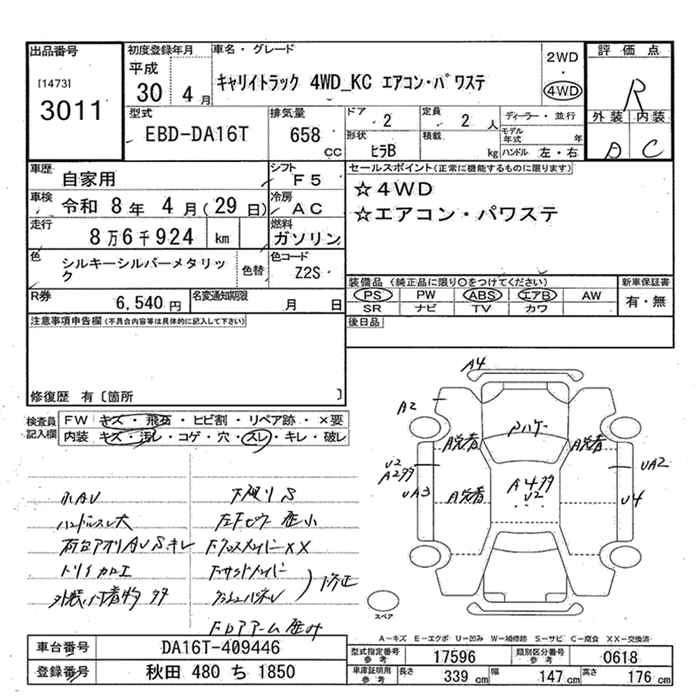 出品番号
[1473]
3011
初度登録年月
平成
30 4月
車名・グレード
キャリイトラック 4WD_KC エアコン・パワステ
2WD
・
4WD
評価点
R
外装 内装
D C
型式
EBD-DA16T
排気量
658
CC
ドア
2
定員
2 人
形状
ﾋﾗB
積載
kg
ディーラー・並行
モデル年式 年
ハンドル 左・右
車歴
自家用
シフト
F5
車検
令和 8年 4月(29日)
冷房
AC
走行
8万6千924 km
燃料
ガソリン
色
シルキーシルバーメタリック
色替
色コード
Z2S
R券
6,540円
名変通知期限
月 日
セールスポイント(正常に機能するものに限ります)
☆4WD
☆エアコン・パワステ
装備品(純正品に限り〇をつけてください)
PS PW ABS エアB AW
SR ナビ TV カワ
新車保証書
有・無
後日品
注意事項申告欄(不具合内容等は具体的に記入して下さい)
修復歴 有〔箇所 〕
検査員記入欄
FW キズ・飛石・ヒビ割・リペア跡・×要
内装 キズ・汚レ・コゲ・穴・スレ・キレ・破レ
小AU
ハンドルスレ大
トリイ加工
下廻りS
左Fピラー歪小
FクロスメンバーXX
修正
A4
A2
Pハゲ
A脱着
A脱着
U2
UA3
A脱着
U2
UA2
U4
スペア
A-キズ E-エクボ U-凹み W-補修跡 S-サビ C-腐食 XX-交換済
車台番号
DA16T-409446
登録番号
秋田 480 ち 1850
型式指定番号 参考
17596
類別区分番号 参考
0618
車庫証明用 参考
長さ 339 cm
幅 147 cm
高さ 176 cm